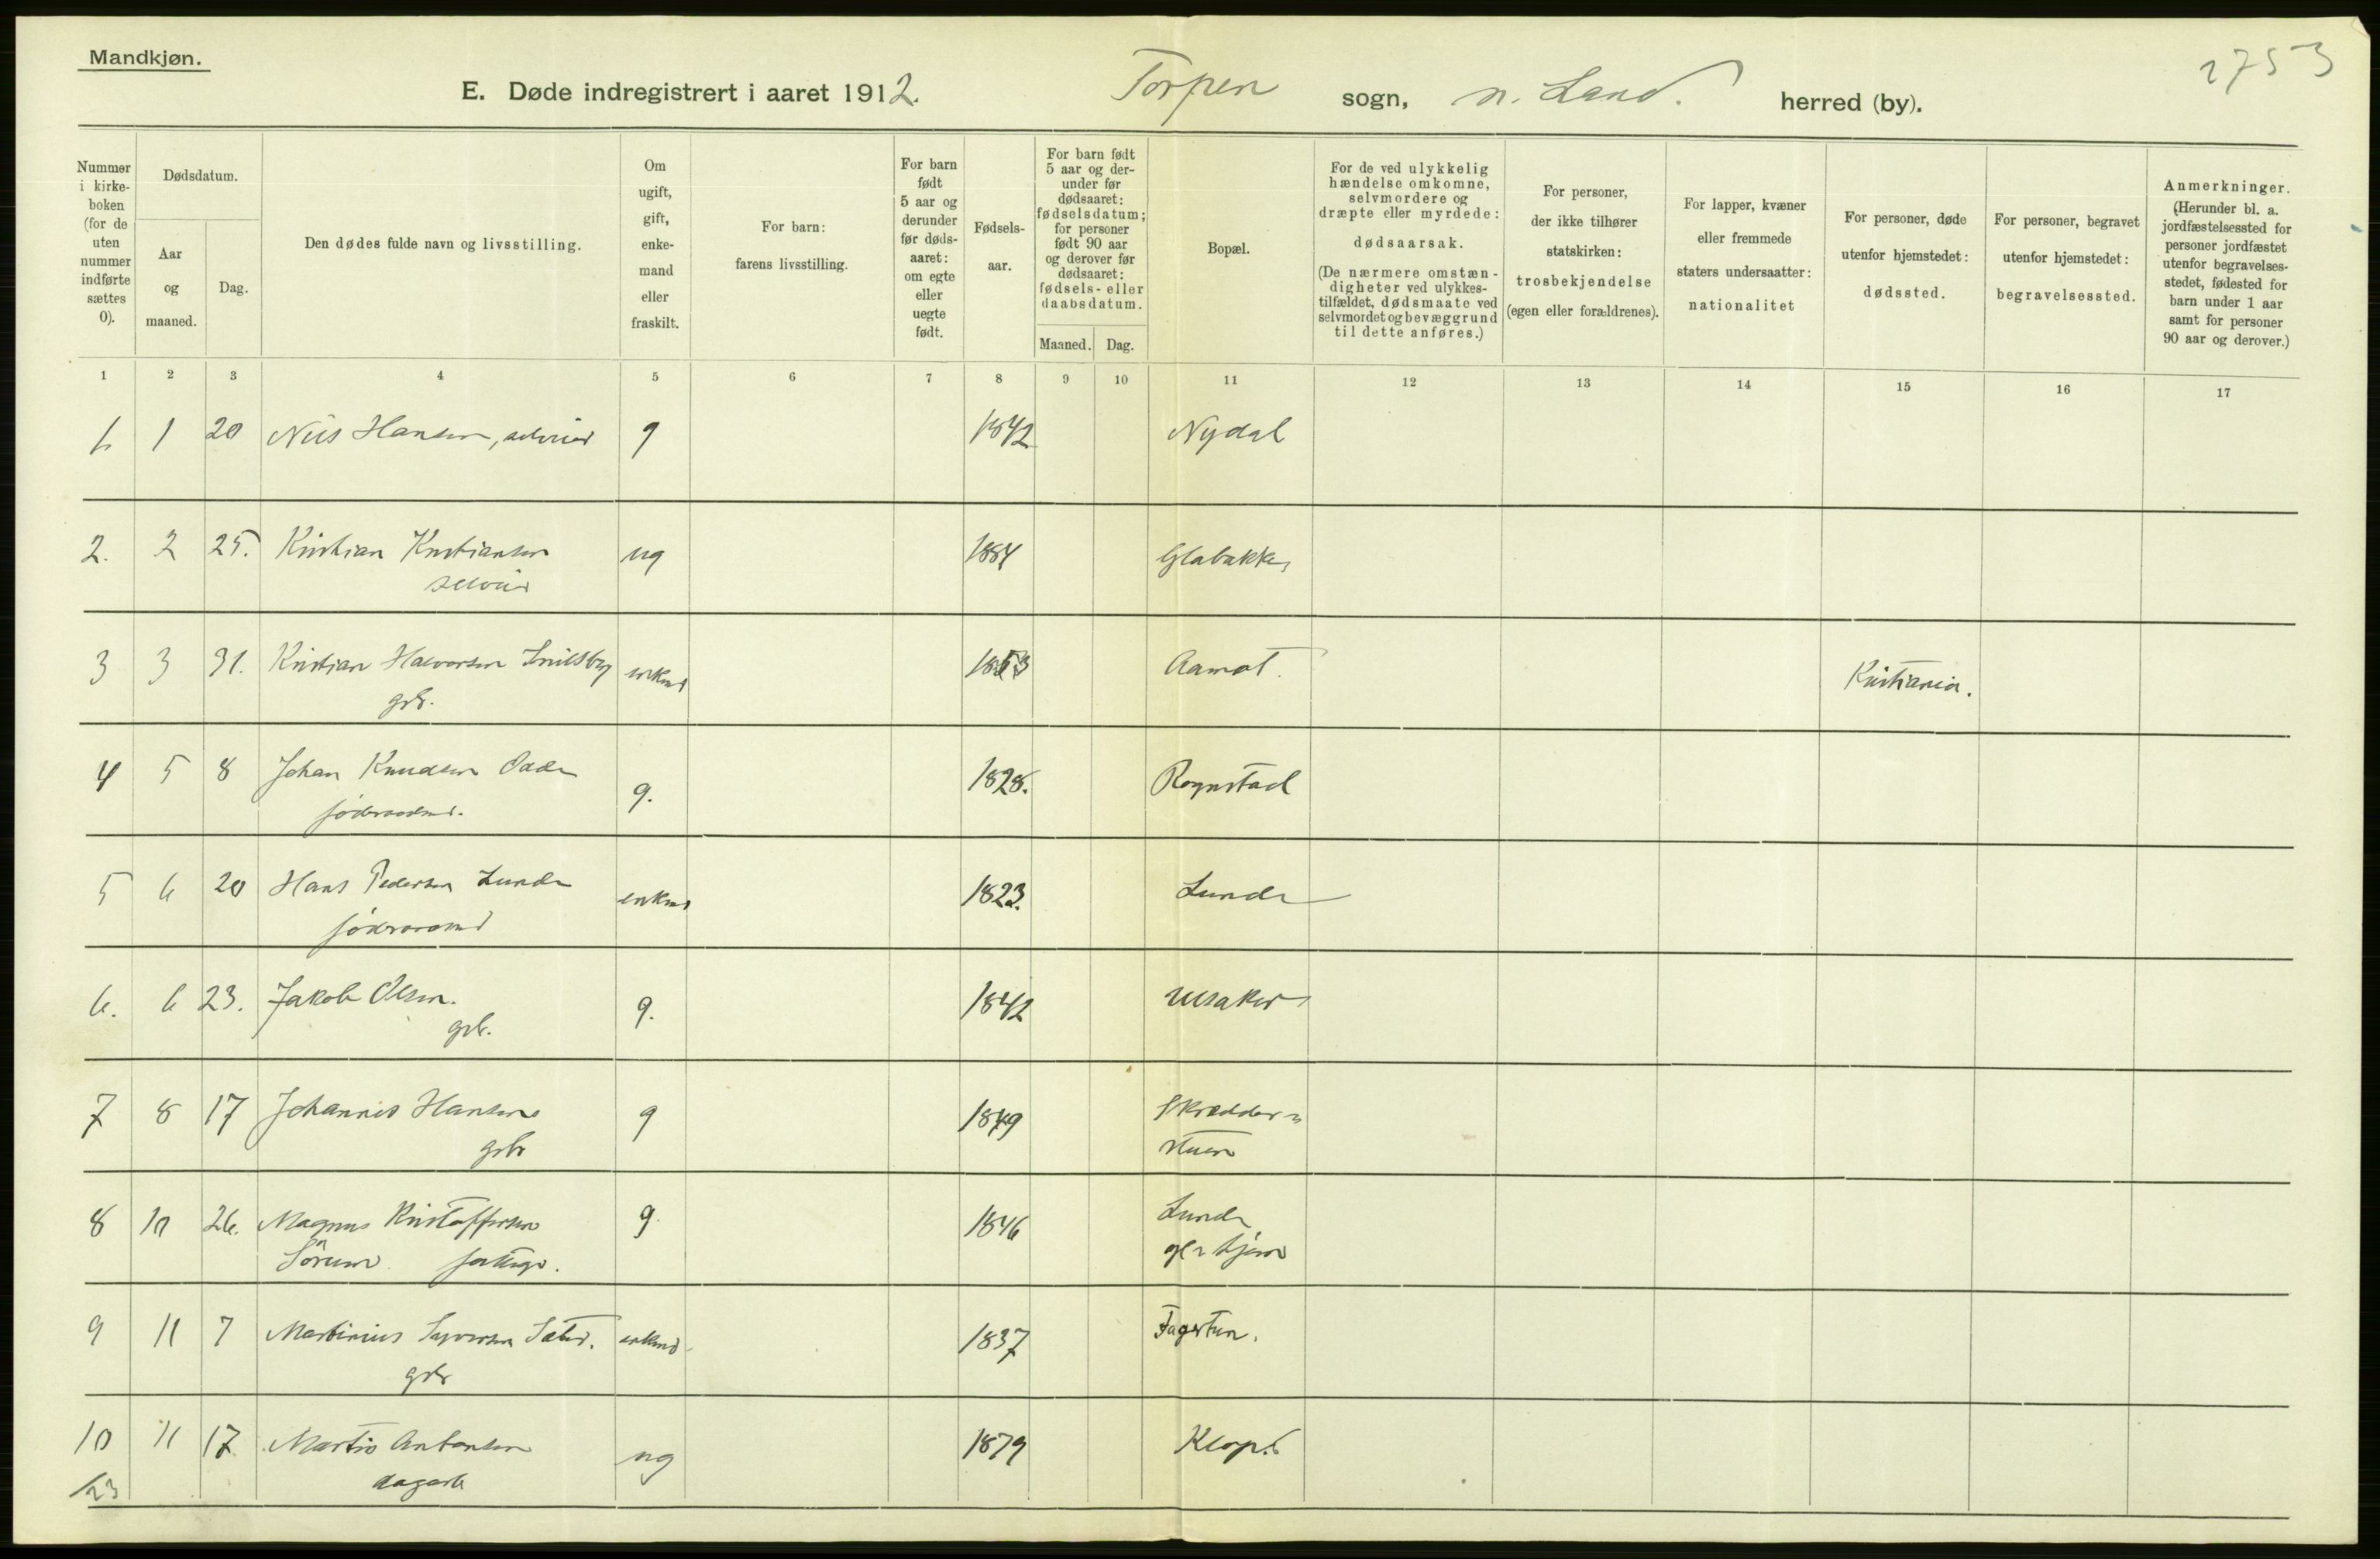 Mandkjøn.
2753
E. Døde indregistrert i aaret 1912. Torpen sogn, n. Land. herred (by).
Nummer i kirke-boken (for de uten nummer indførte sættes 0).
Dødsdatum.
Aar og maaned.
Dag.
Den dødes fulde navn og livsstilling.
Om ugift, gift, enke-mand eller fraskilt.
For barn: farens livsstilling.
For barn født 5 aar og derunder før døds-aaret: om egte eller uegte født.
Fødsels-aar.
For barn født 5 aar og der-under før dødsaaret: fødselsdatum; for personer født 90 aar og derover før dødsaaret: fødsels- eller daabsdatum.
Maaned. Dag.
Bopæl.
For de ved ulykkelig hændelse omkomne, selvmordere og dræpte eller myrdede: dødsaarsak. (De nærmere omstæn-digheter ved ulykkes-tilfældet, dødsmaate ved selvmordet og bevæggrund til dette anføres.)
For personer, der ikke tilhører statskirken: trosbekjendelse (egen eller forældrenes).
For lapper, kvæner eller fremmede staters undersaatter: nationalitet
For personer, døde utenfor hjemstedet: dødssted.
For personer, begravet utenfor hjemstedet: begravelsessted.
Anmerkninger. (Herunder bl. a. jordfæstelsessted for personer jordfæstet utenfor begravelses-stedet, fødested for barn under 1 aar samt for personer 90 aar og derover.)
1 2 3 4 5 6 7 8 9 10 11 12 13 14 15 16 17
1. 1 20 Nils Hansen, g 1842 Nydal
2. 2 25. Kristian Kristiansen ug 1884 Glabakke
3 3 31. Kristian Halvorsen enkmd 1853 Aamot. Kristiania.
grbr.
4 5 8 Johan Knudsen g. 1828. Rognstad
føderaadmd.
5 6 20 Hans Pedersen Lunde enkmd 1823. Lunde
føderaadmd
6. 6 23. Jakob Olsen. g. 1842 Ulsaker
grbr.
7 8 17 Johannes Hansen g 1849 Skrædder-
grbr stuen
8 10 26. Magnus Kristoffersen g. 1846 Lunde
Sørum fattigv. glehjem
9 11 7 Martinius Syversen enkmd. 1837 Fagertun.
grbr
10 11 17 Martin Antonsen ug 1879
dagarb
/23